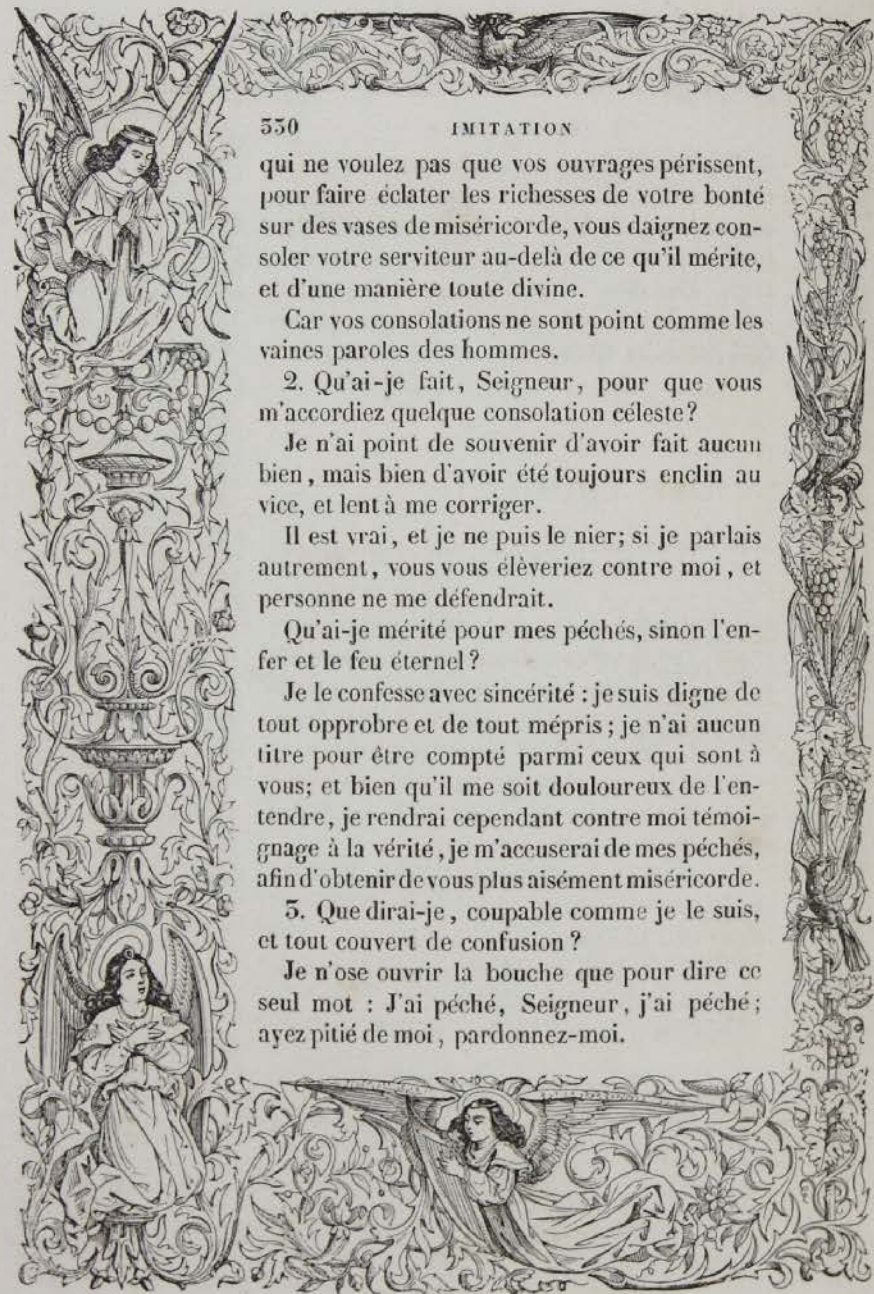 330 IMITATION
qui ne voulez pas que vos ouvrages périssent,
pour faire éclater les richesses de votre bonté
sur des vases de miséricorde, vous daignez con-
soler votre serviteur au-delà de ce qu'il mérite,
et d'une manière toute divine.
Car vos consolations ne sont point comme les
vaines paroles des hommes.
2. Qu'ai-je fait, Seigneur, pour que vous
m'accordiez quelque consolation céleste?
Je n'ai point de souvenir d'avoir fait aucun
bien, mais bien d'avoir été toujours enclin au
vice, et lent à me corriger.
Il est vrai, et je ne puis le nier; si je parlais
autrement, vous vous élèveriez contre moi, et
personne ne me défendrait.
Qu'ai-je mérité pour mes péchés, sinon l'en-
fer et le feu éternel?
Je le confesse avec sincérité : je suis digne de
tout opprobre et de tout mépris; je n'ai aucun
titre pour être compté parmi ceux qui sont à
vous; et bien qu'il me soit douloureux de l'en-
tendre, je rendrai cependant contre moi témoi-
gnage à la vérité, je m'accuserai de mes péchés,
afin d'obtenir de vous plus aisément miséricorde.
3. Que dirai-je, coupable comme je le suis,
et tout couvert de confusion?
Je n'ose ouvrir la bouche que pour dire ce
seul mot : J'ai péché, Seigneur, j'ai péché;
ayez pitié de moi, pardonnez-moi.